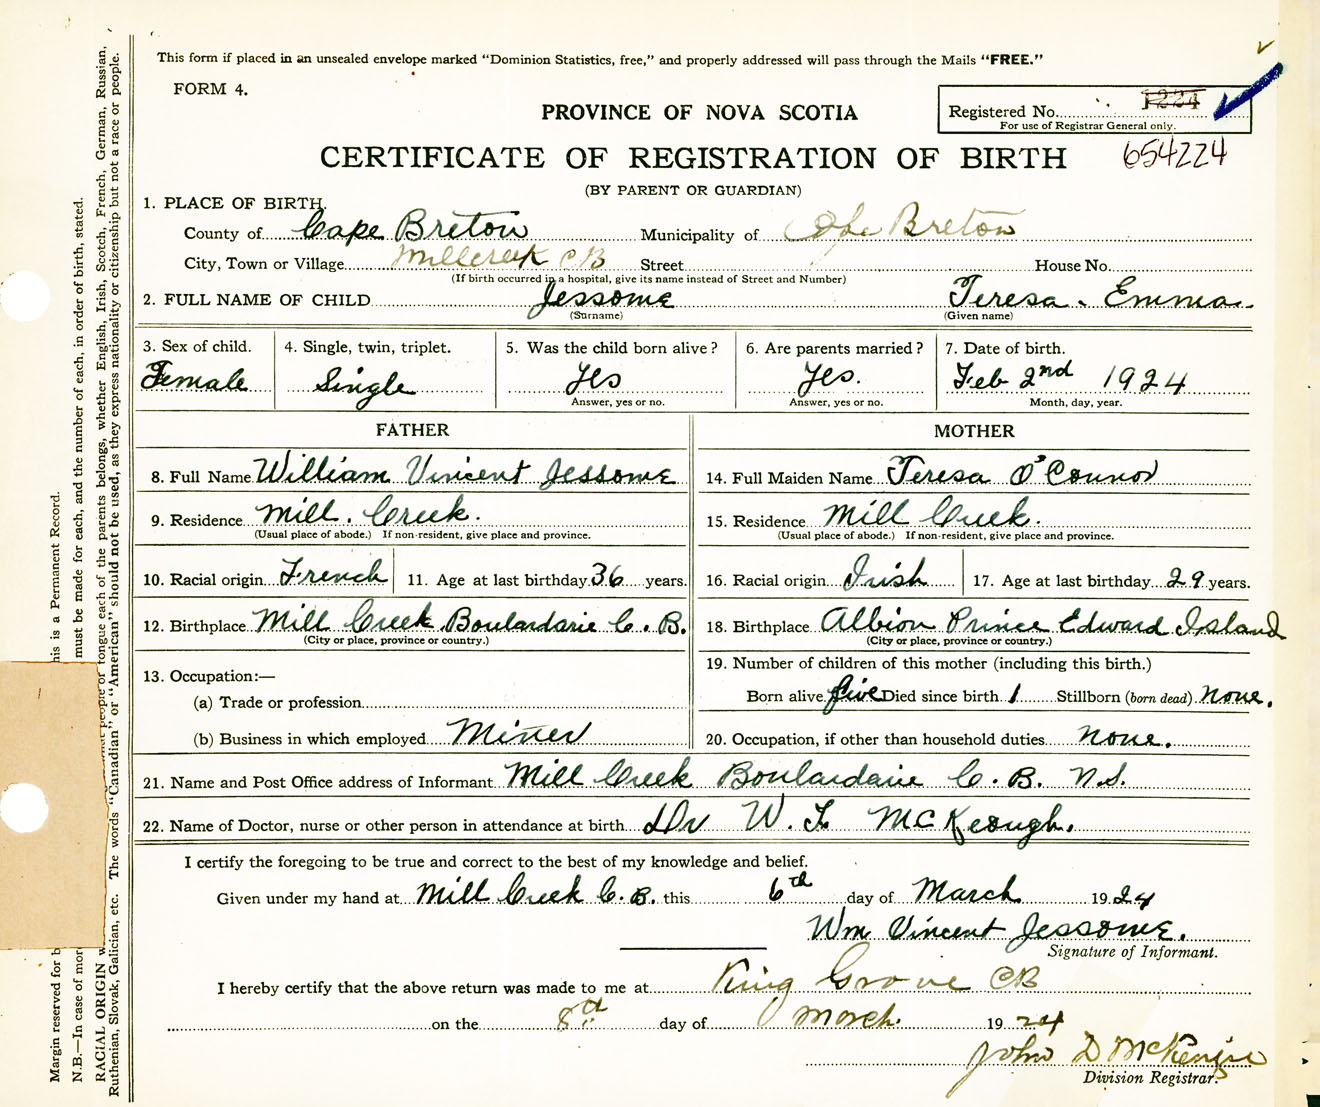 This form if placed in an unsealed envelope marked "Dominion Statistics, free," and properly addressed will pass through the Mails "FREE."
FORM 4.
PROVINCE OF NOVA SCOTIA
Registered No. 1224
For use of Registrar General only.
CERTIFICATE OF REGISTRATION OF BIRTH 654224
(BY PARENT OR GUARDIAN)
1. PLACE OF BIRTH.
County of Cape Breton Municipality of Cape Breton
City, Town or Village Millcreek CB Street House No.
(If birth occurred in a hospital, give its name instead of Street and Number)
2. FULL NAME OF CHILD Jessome Teresa. Emma
(Surname) (Given name)
3. Sex of child. 4. Single, twin, triplet. 5. Was the child born alive? 6. Are parents married? 7. Date of birth.
Female Single Yes Yes. Feb 2nd 1924
Answer, yes or no. Answer, yes or no. Month, day, year.
FATHER MOTHER
8. Full Name William Vincent Jessome 14. Full Maiden Name Teresa O'Connor
9. Residence Mill. Creek. 15. Residence Mill Creek.
(Usual place of abode.) If non-resident, give place and province. (Usual place of abode.) If non-resident, give place and province.
10. Racial origin French 11. Age at last birthday 36 years. 16. Racial origin Irish 17. Age at last birthday 29 years.
12. Birthplace Mill Creek Boulardarie C. B. 18. Birthplace Albion Prince Edward Island
(City or place, province or country.) (City or place, province or country.)
19. Number of children of this mother (including this birth.)
13. Occupation:—
(a) Trade or profession Born alive five Died since birth 1 Stillborn (born dead) none.
(b) Business in which employed Miner 20. Occupation, if other than household duties none.
21. Name and Post Office address of Informant Mill Creek Boulardarie C. B. N.S.
22. Name of Doctor, nurse or other person in attendance at birth Dr W. F. McKeough.
I certify the foregoing to be true and correct to the best of my knowledge and belief.
Given under my hand at Mill Creek C. B. this 6th day of March 1924
Wm Vincent Jessome.
Signature of Informant.
I hereby certify that the above return was made to me at King Grove CB
on the 8th day of March 1924
John D McKenzie
Division Registrar.
Margin reserved for b
his is a Permanent Record.
N.B.—In case of mor
must be made for each, and the number of each, in order of birth, stated.
RACIAL ORIGIN w
people or tongue each of the parents belongs, whether English, Irish, Scotch, French, German, Russian,
Ruthenian, Slovak, Galician, etc. The words "Canadian" or "American" should not be used, as they express nationality or citizenship but not a race or people.